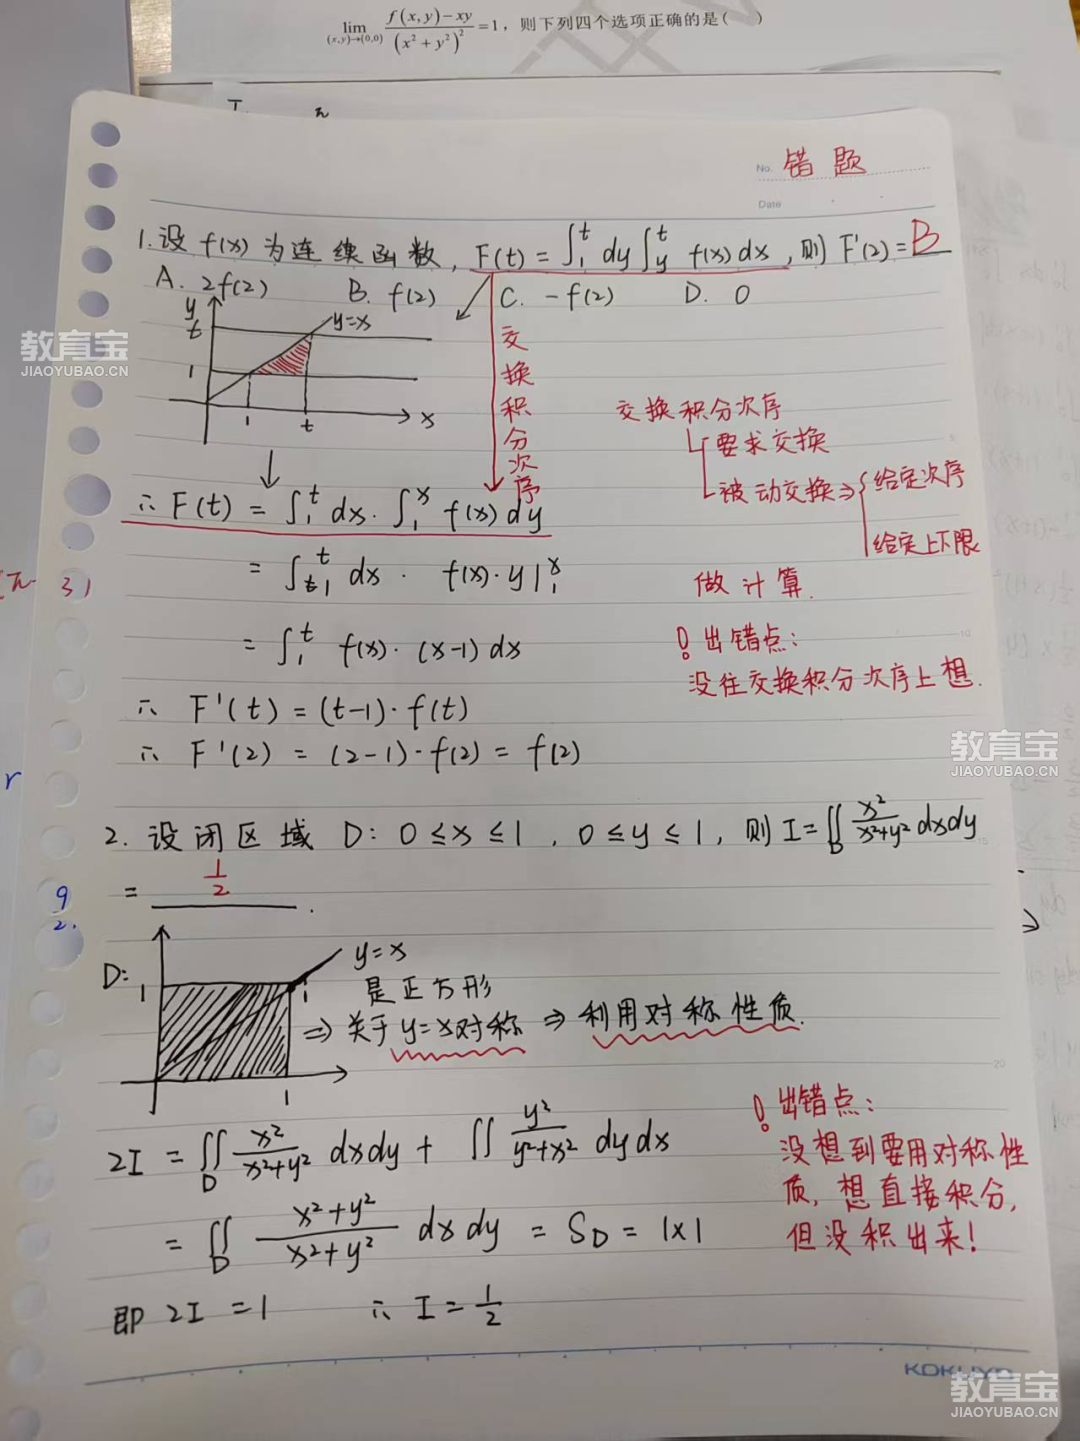 lim (x,y)→(0,0) f(x,y)−xy / (x²+y²)² =1，则下列四个选项正确的是(　　)
No. 错题
Date
1.设f(x)为连续函数，F(t)=∫₁ᵗ dy∫ᵧᵗ f(x)dx，则F'(2)=B
A. 2f(2)　B. f(2)　C. -f(2)　D. 0
y
t
y=x
1
1 t x
交换积分次序
交换积分次序
要求交换
被动交换⇒{给定次序
给定上下限
做计算.
∴F(t)=∫₁ᵗ dx·∫₁ˣ f(x)dy
=∫₁ᵗ dx· f(x)·y|₁ˣ
=∫₁ᵗ f(x)·(x-1)dx
! 出错点:
没往交换积分次序上想.
∴ F'(t)=(t-1)·f(t)
∴ F'(2)=(2-1)·f(2)=f(2)
2. 设闭区域 D: 0≤x≤1, 0≤y≤1, 则I=∬_D x²/(x²+y²) dxdy
= 1/2 .
D: 1
y=x
1
1
是正方形
⇒关于y=x对称⇒利用对称性质.
2I=∬_D x²/(x²+y²) dxdy+∬ y²/(y²+x²) dydx
=∬_D (x²+y²)/(x²+y²) dxdy=S_D=1×1
即 2I=1　∴ I=1/2
! 出错点:
没想到要用对称性
质, 想直接积分,
但没积出来!
KOKUYO
教育宝
JIAOYUBAO.CN
教育宝
JIAOYUBAO.CN
教育宝
JIAOYUBAO.CN